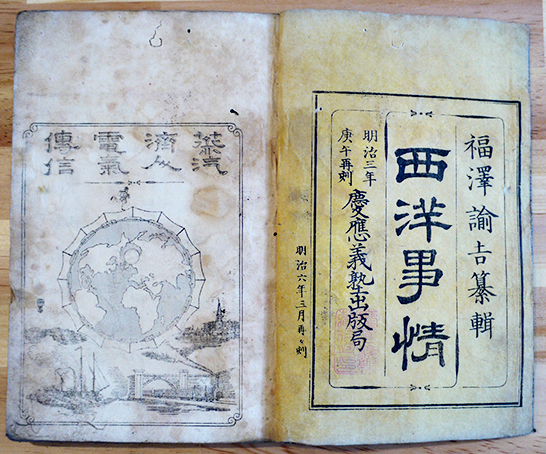 福澤諭吉纂輯
西洋事情
明治三年
庚午再刻
慶應義塾出版局
明治六年三月再々刻
蒸汽
濟人
電氣
傳信